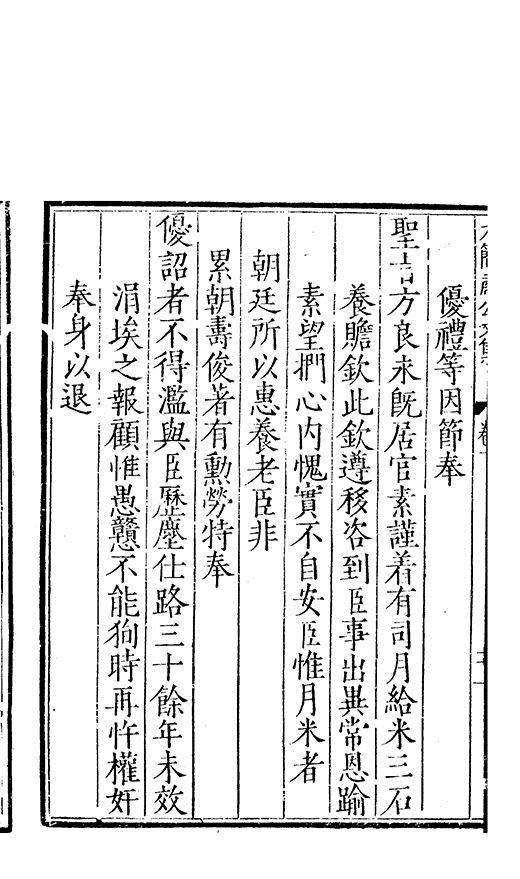 優禮等因節奉
聖旨方良永旣居官素謹着有司月給米三石
養贍欽此欽遵移咨到臣事出異常恩踰
素望捫心内愧實不自安臣惟月米者
朝廷所以惠養老臣非
累朝夀俊著有勳勞特奉
優詔者不得濫與臣歷塵仕路三十餘年未效
涓埃之報顧惟愚戇不能狥時再忤權奸
奉身以退